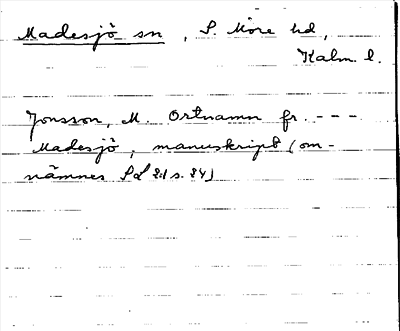 Madesjö sn, S. Möre hd,
Kalm. l.
Jonsson, M. Ortnamn fr. - - -
Madesjö, manuskript (om-
nämnes Sd 21 s. 24)